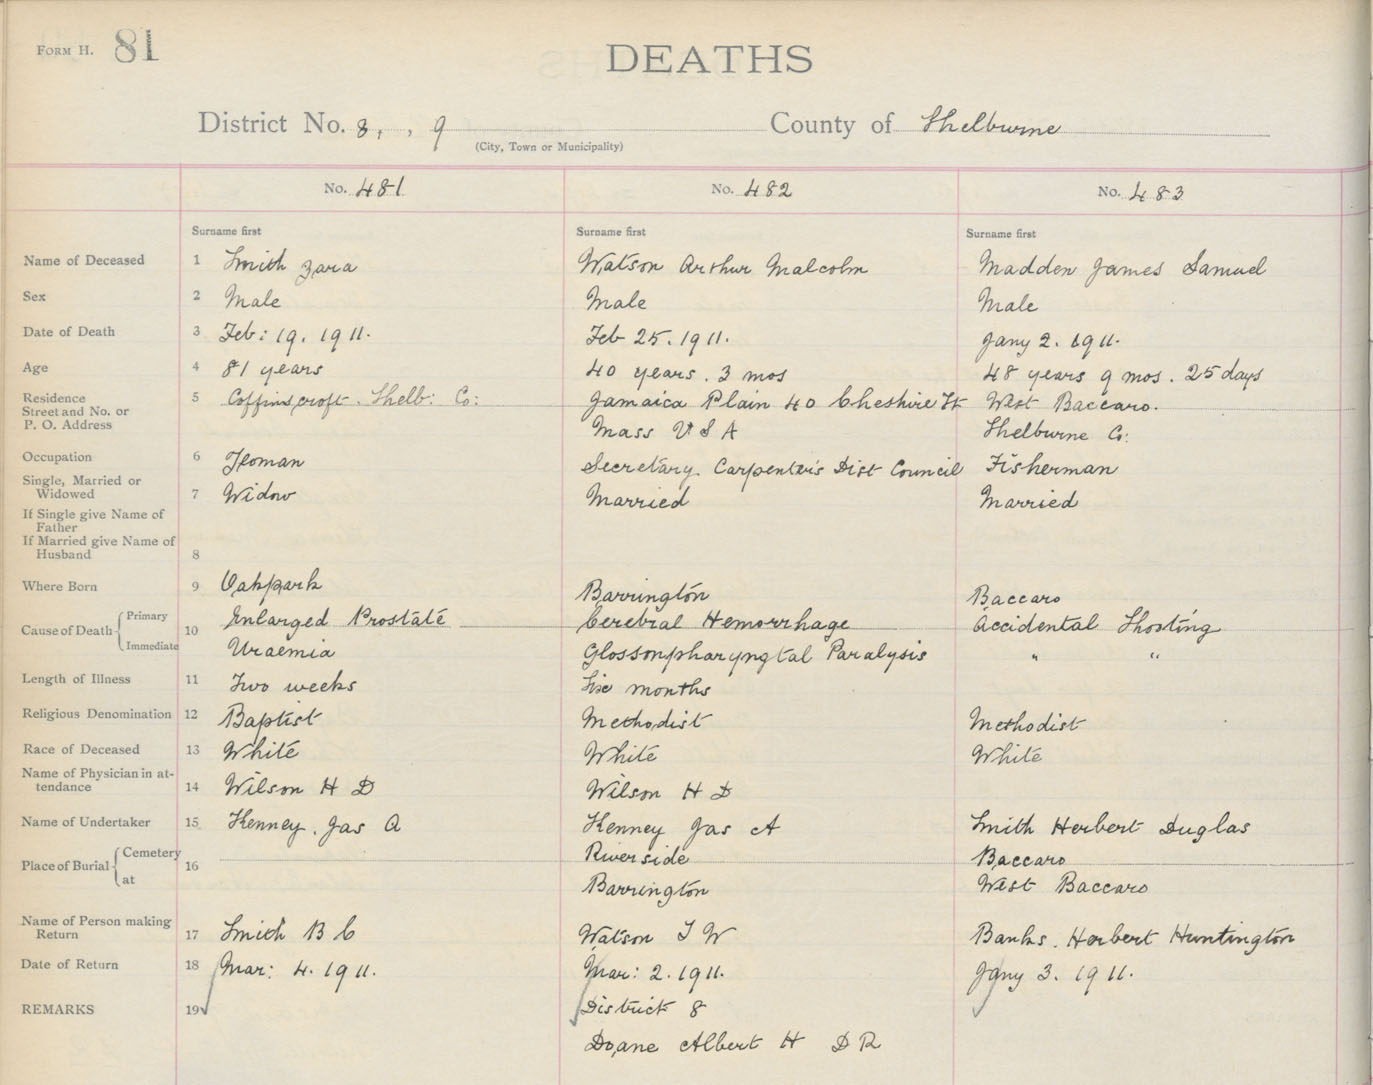 FORM H. 81
DEATHS
District No. 8, , 9 County of Shelburne
(City, Town or Municipality)
No. 481 No. 482 No. 483
Surname first Surname first Surname first
Name of Deceased 1 Smith Zara Watson Arthur Malcolm Madden James Samuel
Sex 2 Male Male Male
Date of Death 3 Feb: 19. 1911. Feb 25. 1911. Jany 2. 1911.
Age 4 81 years 40 years. 3 mos 48 years 9 mos. 25 days
Residence 5 Coffinscroft. Shelb: Co: Jamaica Plain 40 Cheshire St West Baccaro.
Street and No. or
P. O. Address Mass U S A Shelburne Co:
Occupation 6 Yeoman Secretary. Carpenter's Dist Council Fisherman
Single, Married or
Widowed 7 Widow Married Married
If Single give Name of
Father
If Married give Name of
Husband 8
Where Born 9 Oakpark Barrington Baccaro
Cause of Death Primary 10 Enlarged Prostate Cerebral Hemorrhage Accidental Shooting
Immediate Uraemia Glossonpharyngtal Paralysis " "
Length of Illness 11 Two weeks Six months
Religious Denomination 12 Baptist Methodist Methodist
Race of Deceased 13 White White White
Name of Physician in at-
tendance 14 Wilson H D Wilson H D
Name of Undertaker 15 Kenney. Jas A Kenney Jas A Smith Herbert Duglas
Place of Burial Cemetery 16 Riverside Baccaro
at Barrington West Baccaro
Name of Person making
Return 17 Smith B C Watson I W Banks. Herbert Huntington
Date of Return 18 Mar: 4. 1911. Mar: 2. 1911. Jany 3. 1911.
REMARKS 19 District 8
Doane Albert H D R